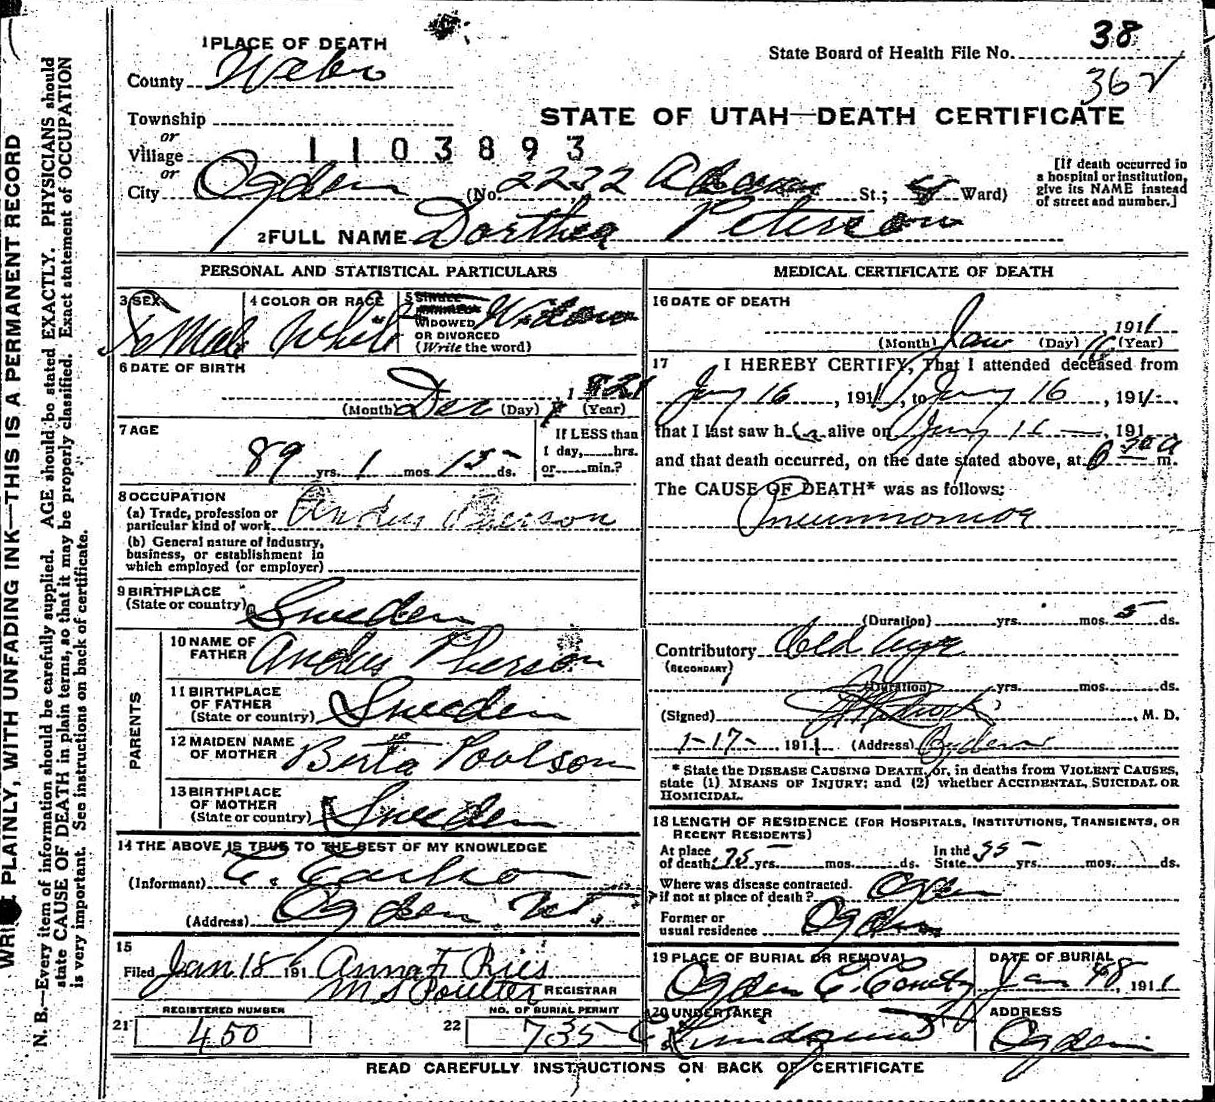 WRITE PLAINLY, WITH UNFADING INK—THIS IS A PERMANENT RECORD
N. B.—Every item of information should be carefully supplied. AGE should be stated EXACTLY. PHYSICIANS should
state CAUSE OF DEATH in plain terms, so that it may be properly classified. Exact statement of OCCUPATION
is very important. See instructions on back of certificate.
38
State Board of Health File No.
362
1 PLACE OF DEATH
County Weber
STATE OF UTAH—DEATH CERTIFICATE
Township
or
Village 1103893
or
City Ogden (No. 2232 Adams St.; Ward)
[If death occurred in
a hospital or institution,
give its NAME instead
of street and number.]
2 FULL NAME Dorthea Peterson
PERSONAL AND STATISTICAL PARTICULARS
3 SEX Female
4 COLOR OR RACE White
5 SINGLE
MARRIED
WIDOWED
OR DIVORCED
(Write the word) Widow
6 DATE OF BIRTH
(Month) Dec (Day) 1 1821 (Year)
7 AGE
89 yrs. 1 mos. 15 ds.
If LESS than
1 day, hrs.
or min.?
8 OCCUPATION
(a) Trade, profession or
particular kind of work Andus Pherson
(b) General nature of industry,
business, or establishment in
which employed (or employer)
9 BIRTHPLACE
(State or country) Sweden
PARENTS
10 NAME OF
FATHER Andus Pherson
11 BIRTHPLACE
OF FATHER
(State or country) Sweden
12 MAIDEN NAME
OF MOTHER Berta Poulson
13 BIRTHPLACE
OF MOTHER
(State or country) Sweden
14 THE ABOVE IS TRUE TO THE BEST OF MY KNOWLEDGE
(Informant) C. Carlson
(Address) Ogden Ut
15
Filed Jan 18 191 Anna F Ries
M S Poulter REGISTRAR
REGISTERED NUMBER
21 450
NO. OF BURIAL PERMIT
22 735
MEDICAL CERTIFICATE OF DEATH
16 DATE OF DEATH
1911
(Month) Jan (Day) 16 (Year)
17 I HEREBY CERTIFY, That I attended deceased from
Jany 16, 1911, to Jany 16, 1911
that I last saw her alive on Jany 16, 191
and that death occurred, on the date stated above, at 6 30 a m.
The CAUSE OF DEATH* was as follows:
Pneumonia
(Duration) yrs. mos. 5 ds.
Contributory Old age
(SECONDARY)
(Duration) yrs. mos. ds.
(Signed) M. D.
1-17- 1911 (Address) Ogden
* State the DISEASE CAUSING DEATH, or, in deaths from VIOLENT CAUSES,
state (1) MEANS OF INJURY; and (2) whether ACCIDENTAL, SUICIDAL OR
HOMICIDAL.
18 LENGTH OF RESIDENCE (FOR HOSPITALS, INSTITUTIONS, TRANSIENTS, OR
RECENT RESIDENTS)
At place
of death yrs. mos. ds.
In the
State 35 yrs. mos. ds.
Where was disease contracted.
if not at place of death? Ogden
Former or
usual residence Ogden
19 PLACE OF BURIAL OR REMOVAL
Ogden C. Cemty
DATE OF BURIAL
Jan 18, 1911
20 UNDERTAKER
ADDRESS
Ogden
READ CAREFULLY INSTRUCTIONS ON BACK OF CERTIFICATE